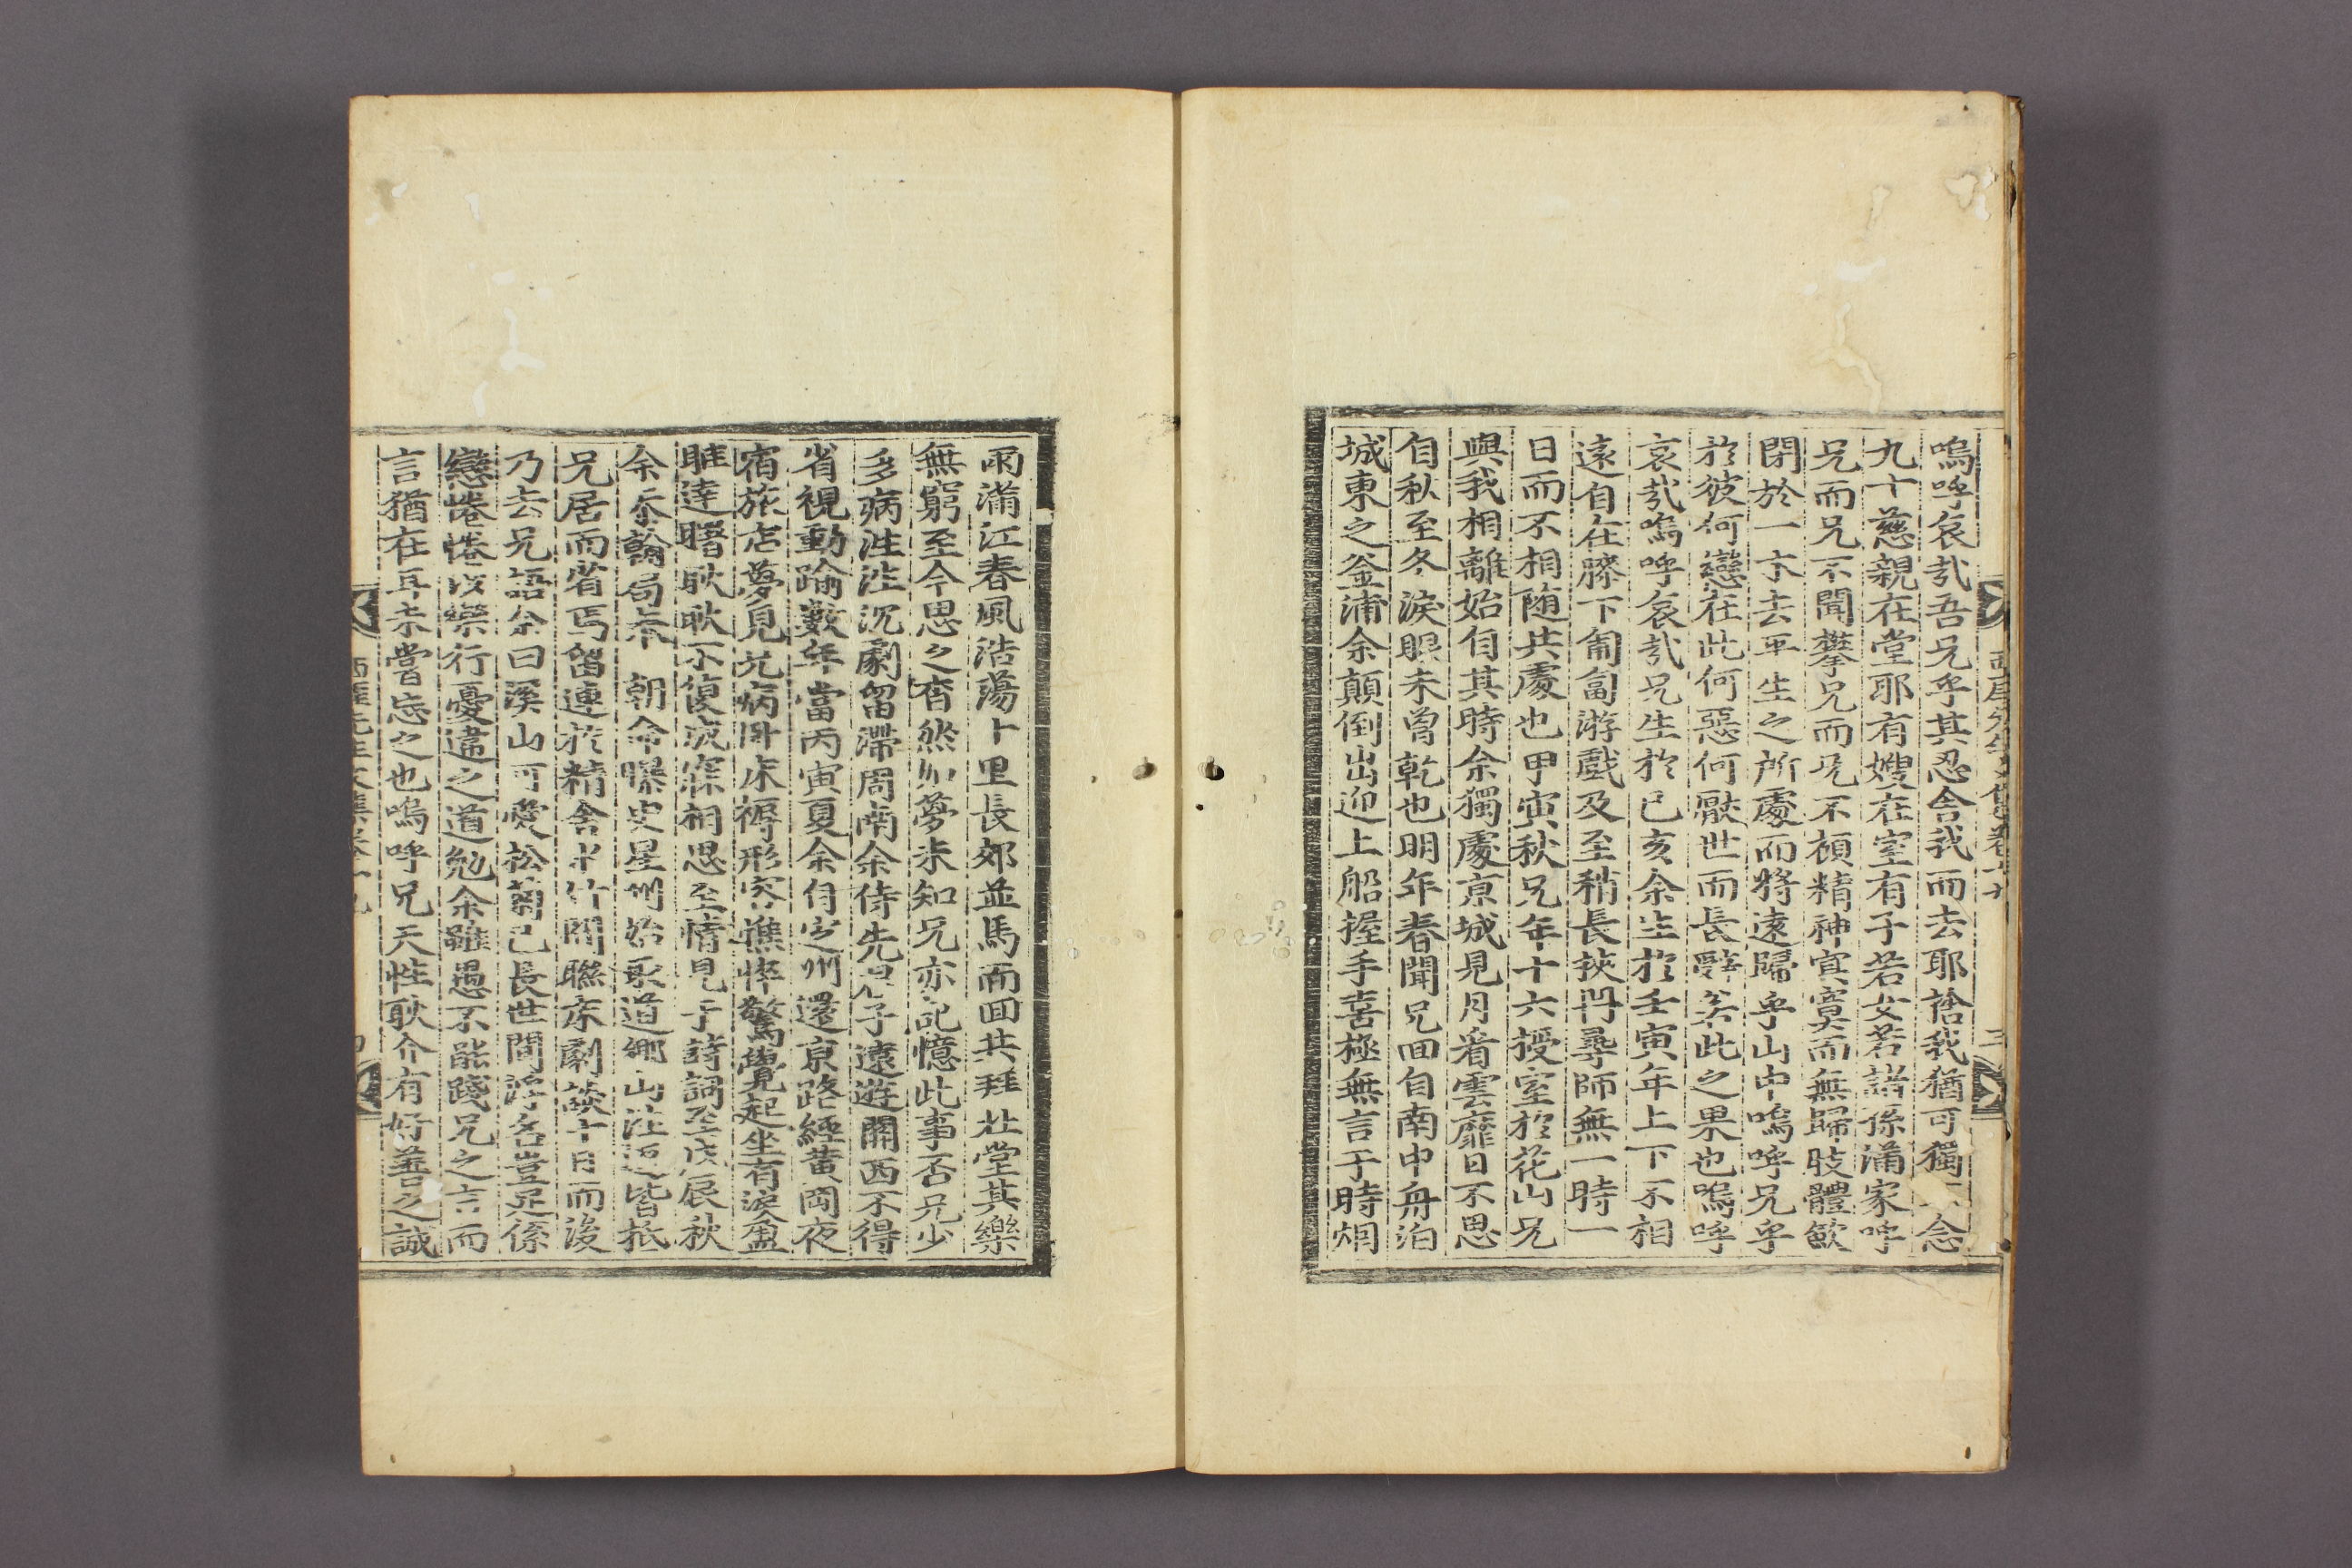 西厓先生文集卷十九
三
嗚呼哀哉吾兄乎其忍舍我而去耶捨我猶可獨不念
九十慈親在堂耶有嫂在室有子若女若諸孫滿家呼
兄而兄不聞攀兄而兄不顧精神寞寞而無歸肢體斂
閉於一木去平生之所處而將遠歸乎山中嗚呼兄乎
於彼何戀在此何惡何厭世而長辭若此之果也嗚呼
哀哉嗚呼哀哉兄生於己亥余生於壬寅年上下不相
遠自在膝下匍匐游戲及至稍長挾冊尋師無一時一
日而不相随共處也甲寅秋兄年十六授室於花山兄
與我相離始自其時余獨處京城見月看雲靡日不思
自秋至冬淚眼未曾乾也明年春聞兄回自南中舟泊
城東之釜浦余顛倒出迎上船握手喜極無言于時烟
雨滿江春風浩蕩十里長郊並馬而回共拜北堂其樂
無窮至今思之杳然如夢未知兄亦記憶此事否兄少
多病往往沉劇留滯周南余侍先君子遠遊關西不得
省視動踰數年當丙寅夏余自定州還京路經黄岡夜
宿旅店夢見兄病卧床褥形容憔悴驚覺起坐有淚盈
眶達曙耿耿不復成寐相思至情見于詩詞至戊辰秋
余忝翰局奉　朝命曝史星州始取道鄉山往返皆抵
兄居而省焉留連於精舍水竹間聯床劇談十日而後
乃去兄語余曰溪山可愛松菊已長世間浮名豈足係
戀惓惓以樂行憂違之道勉余雖愚不能踐兄之言而
言猶在耳未嘗忘之也嗚呼兄天性耿介有好善之誠
西厓先生文集卷十九